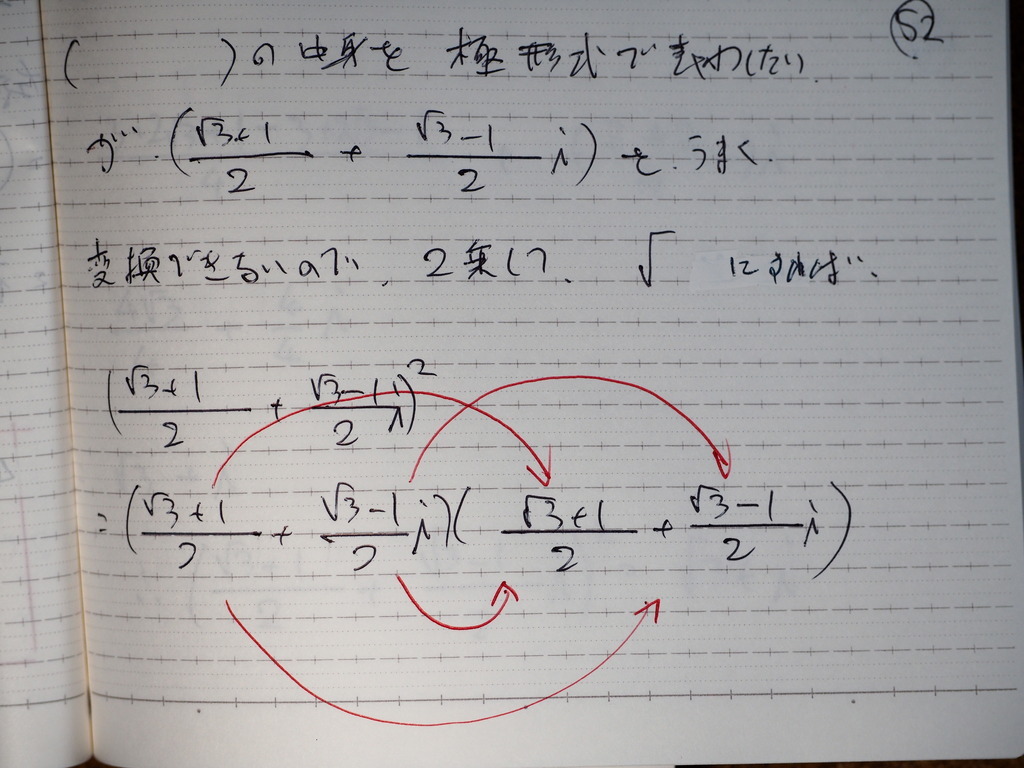 52
(　　　)の中身を 極形式で表わしたい
が… (\frac{√3+1}{2} + \frac{√3-1}{2}i) を うまく
変換できないので、2乗して、√ にすれば…
(\frac{√3+1}{2} + \frac{√3-1}{2}i)^2
= (\frac{√3+1}{2} + \frac{√3-1}{2}i)(\frac{√3+1}{2} + \frac{√3-1}{2}i)